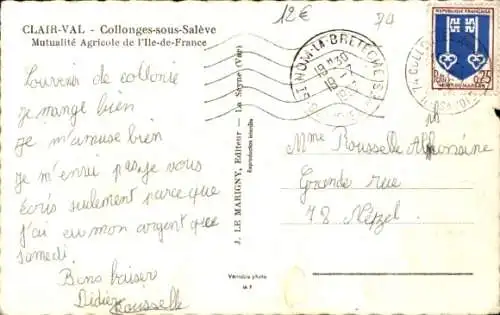 CLAIR-VAL - Collonges-sous-Salève
Mutualité Agricole de l'Ile-de-France
12€
Souvenir de colonie
je mange bien
je m'amuse bien
je m'enui pas je vous
écris seulement parce que
j'ai eu mon argent que
samedi.
Bons baiser
Didier
Rousselle
J. LE MARIGNY, Editeur - La Seyne (Var)
Reproduction interdite
Véritable photo
ST NOM-LA-BRETECHE
REPUBLIQUE FRANÇAISE
0,25
MONT-DE-MARSAN
Mme Rousselle Alphonsine
Grande rue
78